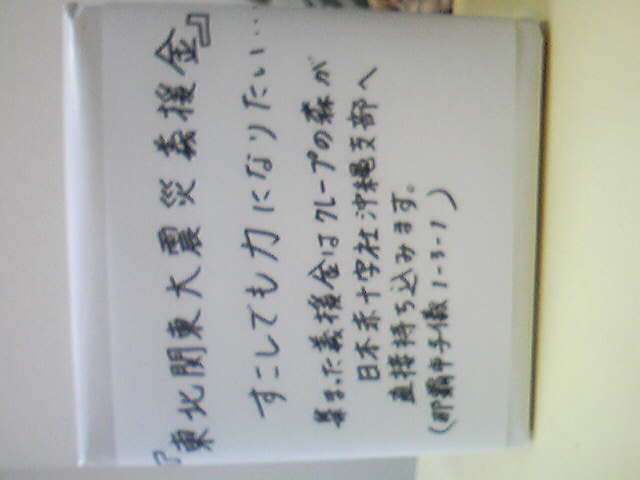 『東北関東大震災義援金』
すこしでも力になりたい…
集まった義援金はクレープの森が
日本赤十字社沖縄支部へ
直接持ち込みます。
(那覇市与儀1-3-1)